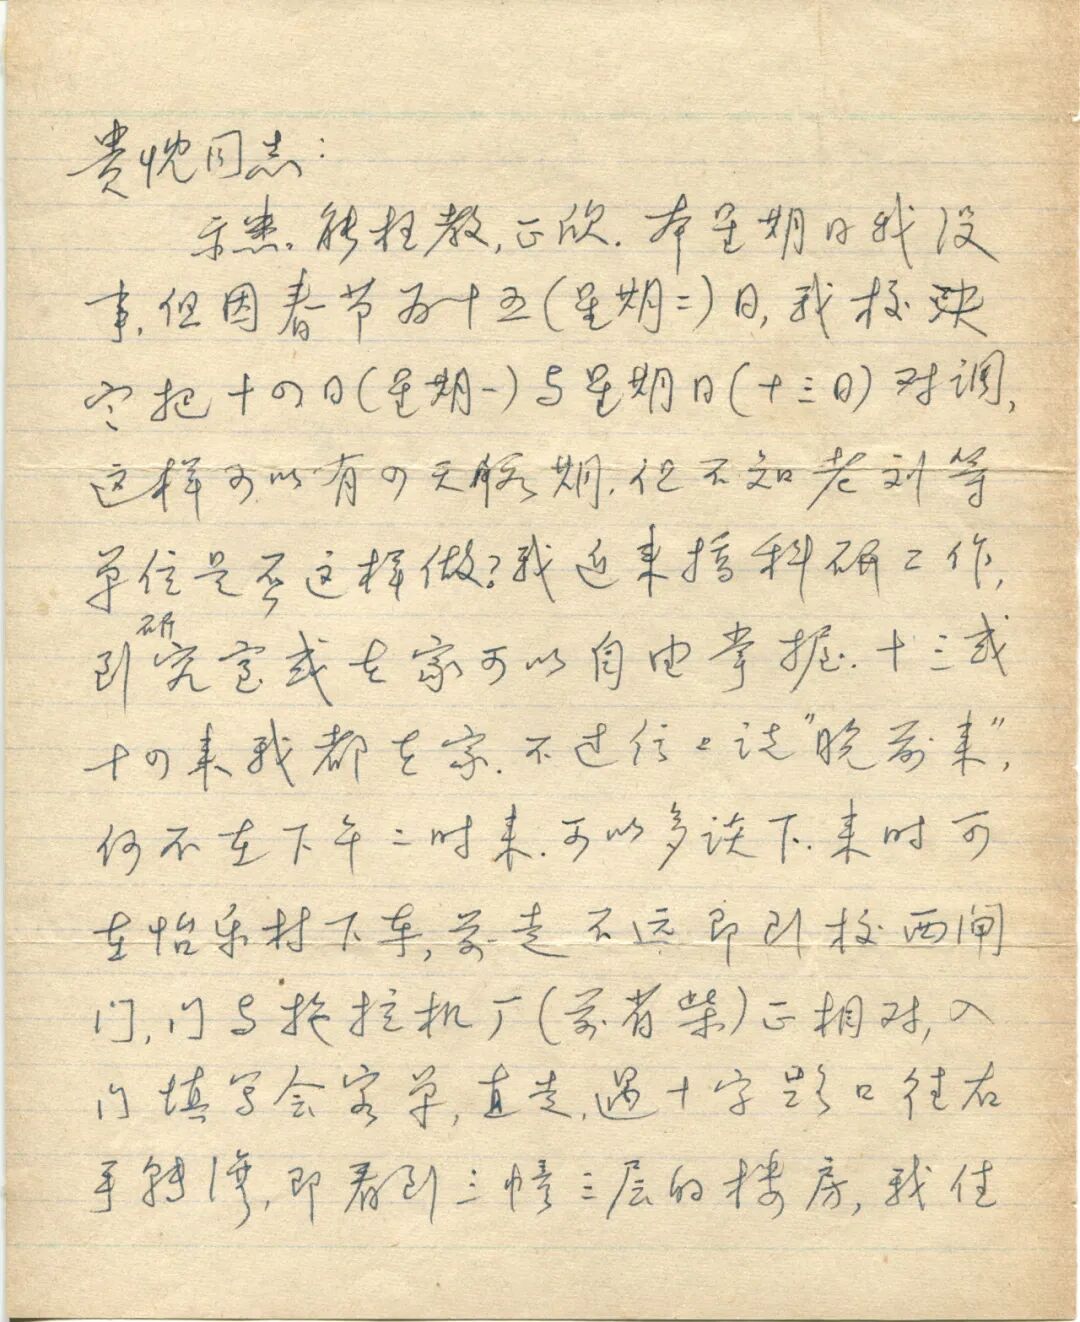 贵忱同志：
示悉。能枉教，正欣。本星期日我没
事，但因春节为十五（星期二）日，我校决
定把十四日（星期一）与星期日（十三日）对调，
这样可以有四天假期，但不知老刘等
单位是否这样做？我近来搞科研工作，
到研究室或在家可以自由掌握。十三或
十四来我都在家。不过信上说“晚前来”，
何不在下午二时来，可以多谈下。来时可
在怡乐村下车，前走不远即到校西闸
门，门与拖拉机厂（前省柴）正相对，入
门填写会客单，直走，遇十字路口往右
手转湾，即看到三幢三层的楼房，我住